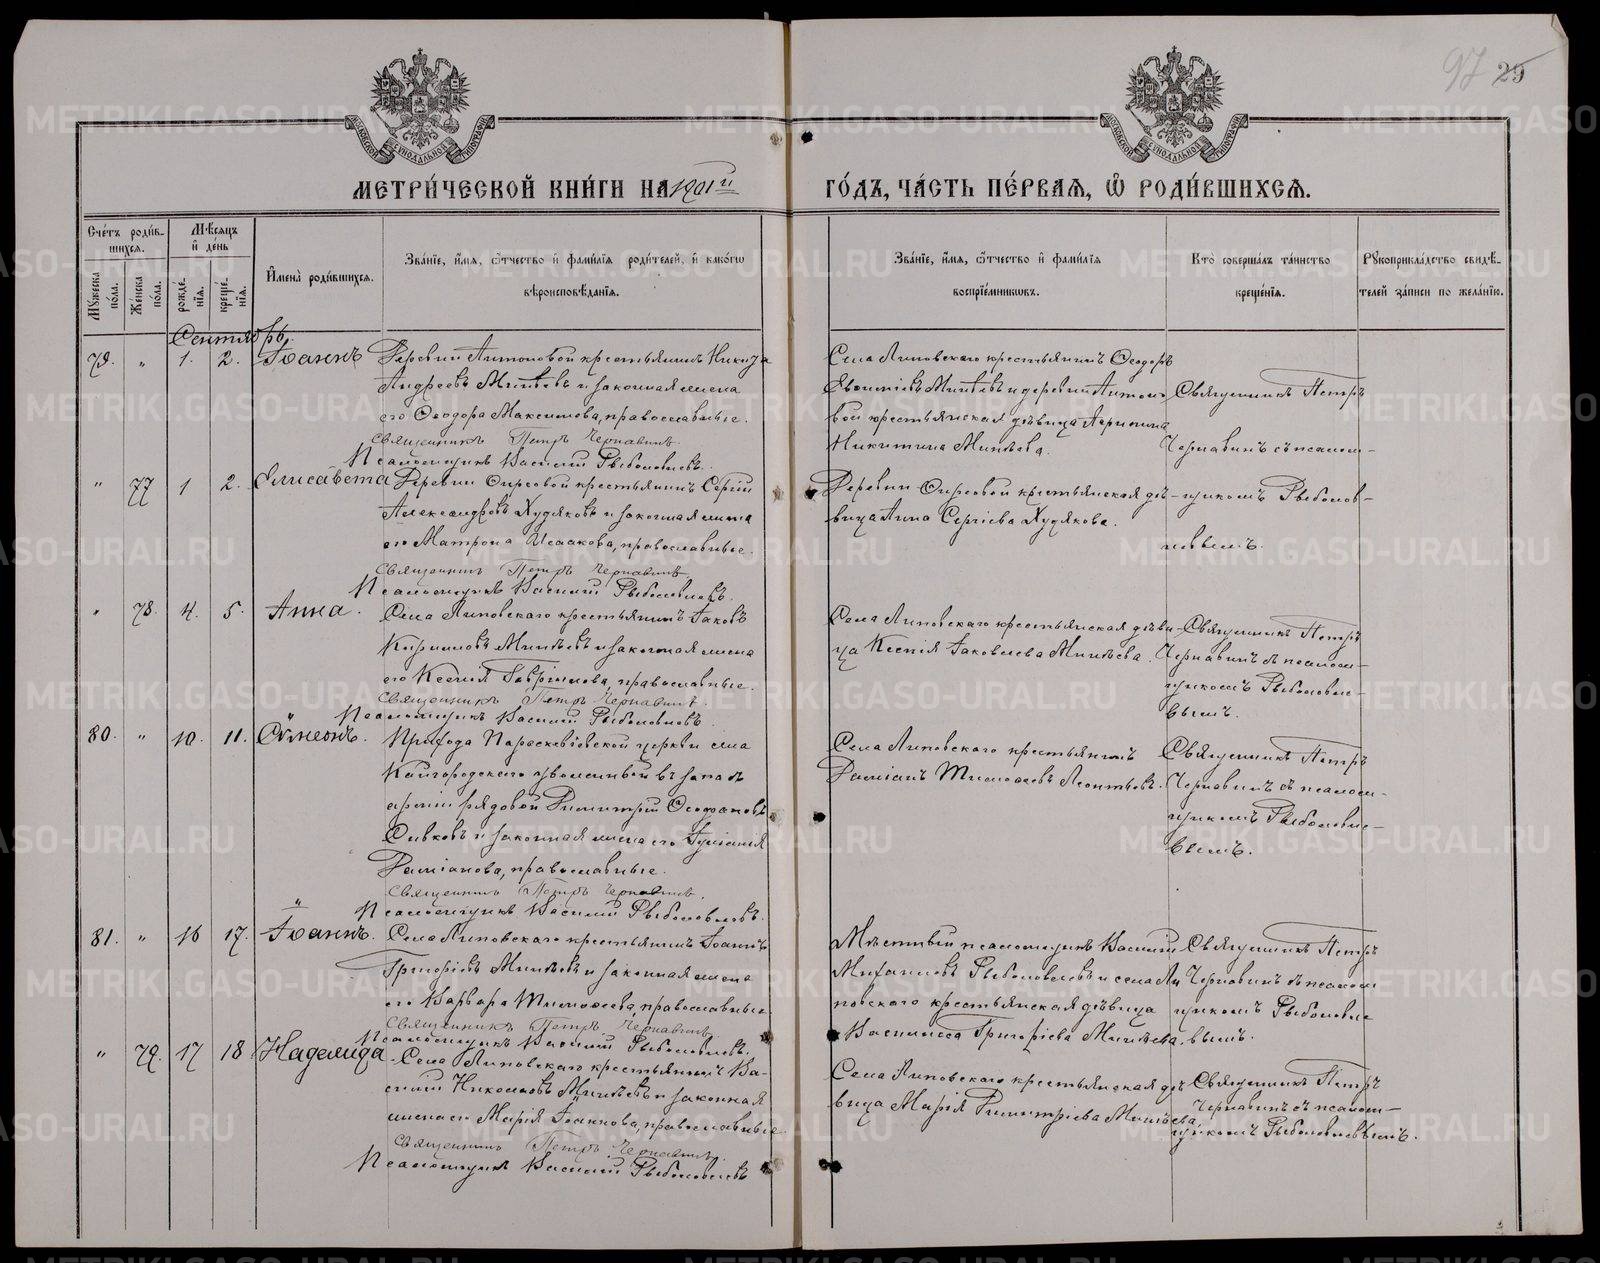 97 29
МОСКОВСКОЙ СѴНОДАЛЬНОЙ ТИПОГРАФІИ
МОСКОВСКОЙ СѴНОДАЛЬНОЙ ТИПОГРАФІИ
МЕТРИ́ЧЕСКОЙ КНИ́ГИ НА 1901й ГО́ДЪ, ЧА́СТЬ ПЕ́РВАѦ, Ѡ҆ РОДИ́ВШИХСѦ.
Сче́тъ роди́в-
шихсѧ.
Мꙋ́жеска по́ла.
Же́нска по́ла.
Мѣ́сѧцъ
и҆ де́нь
рожде́-
нїѧ.
креще́-
нїѧ.
И҆мена̀ роди́вшихсѧ.
Зва́нїе, и҆́мѧ, ѻ҆́тчество и҆ фами́лїѧ роди́телей, и҆ како́гѡ
вѣроисповѣ́данїѧ.
Зва́нїе, и҆́мѧ, ѻ҆́тчество и҆ фами́лїѧ
воспрїе́мниковъ.
Кто̀ соверша́лъ та́инство
креще́нїѧ.
Рꙋкоприкла́дство свидѣ́-
телей за́писи по жела́нїю.
Сентябрь
79. " 1. 2. Іоаннъ
Деревни Антоновой крестьянинъ Никита
Андреевъ Минѣевъ и законная жена
его Ѳеодора Максимова, православные.
Священникъ Петръ Чернавинъ.
Псаломщикъ Василій Рыболовлевъ.
Села Липовскаго крестьянинъ Ѳеодоръ
Евѳиміевъ Минѣевъ и деревни Антоно-
вой крестьянская дѣвица Агрипина
Никитина Минѣева.
Священникъ Петръ
Чернавинъ съ псалом-
щикомъ Рыболов-
левымъ.
" 77 1 2. Елисавета
Деревни Фирсовой крестьянинъ Сергій
Александровъ Худяковъ и законная жена
его Матрона Исаакова, православные.
Священникъ Петръ Чернавинъ
Псаломщикъ Василій Рыболовлевъ.
Деревни Фирсовой крестьянская дѣ-
вица Анна Сергіева Худякова.
" 78. 4. 5. Анна.
Села Липовскаго крестьянинъ Іаковъ
Кирилловъ Минѣевъ и законная жена
его Ксенія Гавриилова, православные.
Священникъ Петръ Чернавинъ.
Псаломщикъ Василій Рыболовлевъ.
Села Липовскаго крестьянская дѣви-
ца Ксенія Іаковлева Минѣева.
Священникъ Петръ
Чернавинъ съ псалом-
щикомъ Рыболовле-
вымъ.
80. " 10. 11. Сѵмеонъ.
Прихода Параскевіевской церкви села
Кайгородскаго уволенный въ запасъ
арміи рядовой Димитрій Ѳеофановъ
Сивковъ и законная жена его Іуліанія
Даміанова, православные.
Священникъ Петръ Чернавинъ.
Псаломщикъ Василій Рыболовлевъ.
Села Липовскаго крестьянинъ
Даміанъ Тимоѳеевъ Леонтьевъ.
Священникъ Петръ
Чернавинъ съ псалом-
щикомъ Рыболовле-
вымъ.
81. " 16 17. Іоаннъ.
Села Липовскаго крестьянинъ Іоаннъ
Григоріевъ Минѣевъ и законная жена
его Варвара Тимоѳеева, православные
Священникъ Петръ Чернавинъ
Псаломщикъ Василій Рыболовлевъ.
Мѣстный псаломщикъ Василій
Михаиловъ Рыболовлевъ и села Ли-
повскаго крестьянская дѣвица
Василисса Григоріева Минѣева.
Священникъ Петръ
Чернавинъ съ псалом
щикомъ Рыболовле
вымъ.
" 79. 17 18 Надежда
Села Липовскаго крестьянинъ Ва-
силій Николаевъ Минѣевъ и законная
жена его Марія Іоаннова, православные
Священникъ Петръ Чернавинъ.
Псаломщикъ Василій Рыболовлевъ
Села Липовскаго крестьянская дѣ-
вица Марія Димитріева Минѣева.
Священникъ Петръ
Чернавинъ съ псалом-
щикомъ Рыболовлевымъ.
METRIKI.GASO-URAL.RU